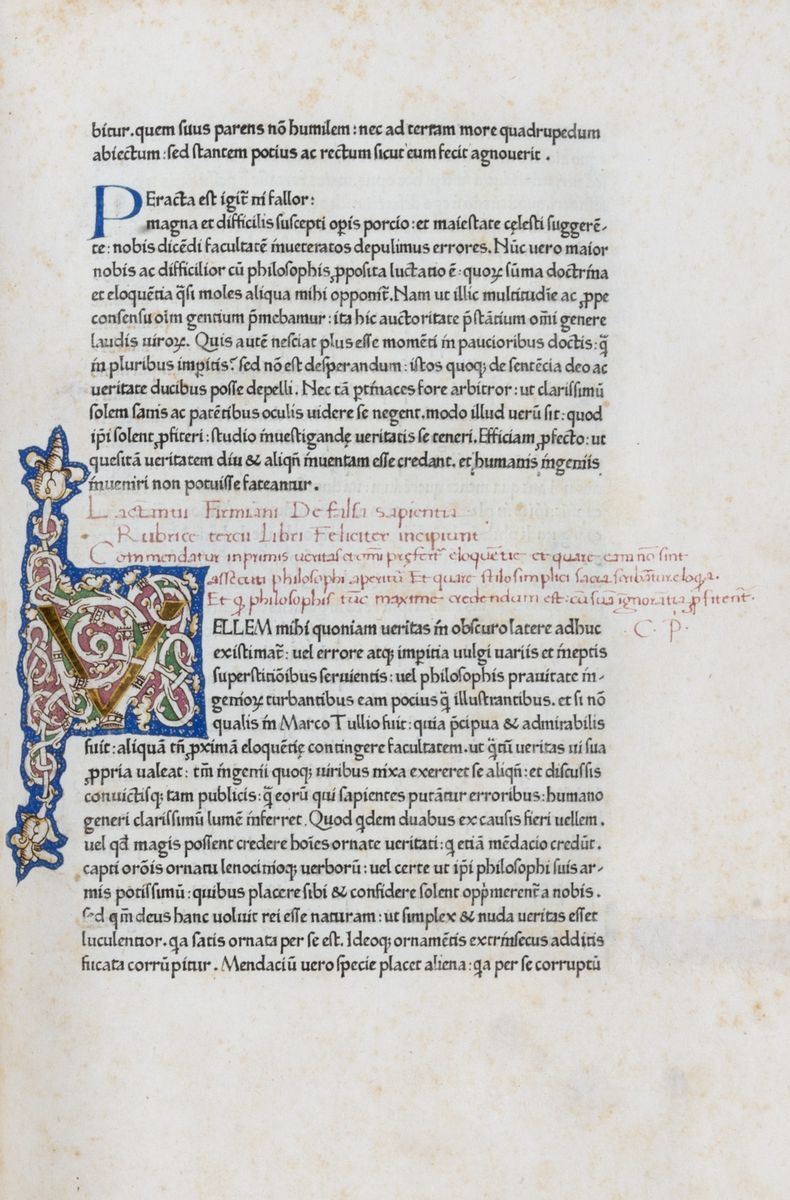 bitur. quem suus parens nō humilem: nec ad terram more quadrupedum
abiectum: sed stantem potius ac rectum sicut eum fecit agnouerit .
PEracta est igit̄ ni fallor:
magna et difficilis suscepti op̄is porcio: et maiestate cęlesti suggerē-
te: nobis dicēdi facultatē inueteratos depulimus errores. Nūc uero maior
nobis ac difficilior cū philosophis ꝓposita luctatio ē: quoꝝ sūma doctrina
et eloquētia q̄si moles aliqua mihi opponit̄. Nam ut illic multitudīe ac ꝓpe
consensu oīm gentium p̄mebamur: ita hic auctoritate p̄stātium omī genere
laudis uiroꝝ. Quis autē nesciat plus esse momēti in paucioribus doctis: q̄
in pluribus imꝑitis? sed nō est desperandum: istos quoq; de sentēcia deo ac
ueritate ducibus posse depelli. Nec tā ꝑtinaces fore arbitror: ut clarissimū
solem sanis ac patētibus oculis uidere se negent. modo illud uerū sit: quod
ip̄i solent ꝓfiteri: studio inuestigandę ueritatis se teneri. Efficiam ꝓfecto: ut
quesitā ueritatem diu & aliqn̄ inuentam esse credant. et humanis ingeniis
inueniri non potuisse fateantur.
Lactantii Firmiani De falsa sapientia
Rubrice tercii Libri Feliciter incipiunt
Commendatur inprimis ueritas et omī pręfert̄ eloquētie et quare eam nō sint
assecuti philosophi aperitū Et quare stilo simplici sacra scribātur eloq̄a.
Et q̄ philosophis tūc maxime credendum est: cū suā ignorātiā ꝓfitent̄.
C. P.
VELLEM mihi quoniam ueritas in obscuro latere adhuc
existimat̄: uel errore atq; imꝑitia uulgi uariis et ineptis
superstitiōibus seruientis: uel philosophis prauitate in-
genioꝝ turbantibus eam pocius q̄ illustrantibus. et si nō
qualis in Marco Tullio fuit: quia p̄cipua & admirabilis
fuit: aliquā tn̄ ꝓximā eloquētię contingere facultatem. ut q̄tū ueritas ui sua
ꝓpria ualeat: tm̄ ingenii quoq; uiribus nixa exereret se aliqn̄: et discussis
conuictisq; tam publicis: q̄ eorū qui sapientes putātur erroribus: humano
generi clarissimū lumē inferret. Quod q̄dem duabus ex causis fieri uellem.
uel qd̄ magis possent credere hoīes ornate ueritati: q̄ etiā mēdacio credūt.
capti orōis ornatu lenocinioq; uerborū: uel certe ut ip̄i philosophi suis ar-
mis potissimū: quibus placere sibi & confidere solent opp̄merent̄ a nobis.
Sed qm̄ deus hanc uoluit rei esse naturam: ut simplex & nuda ueritas esset
luculentior. qa satis ornata per se est. Ideoq; ornamētis extrinsecus additis
fucata corrūpitur. Mendaciū uero specie placet aliena: qa per se corruptū